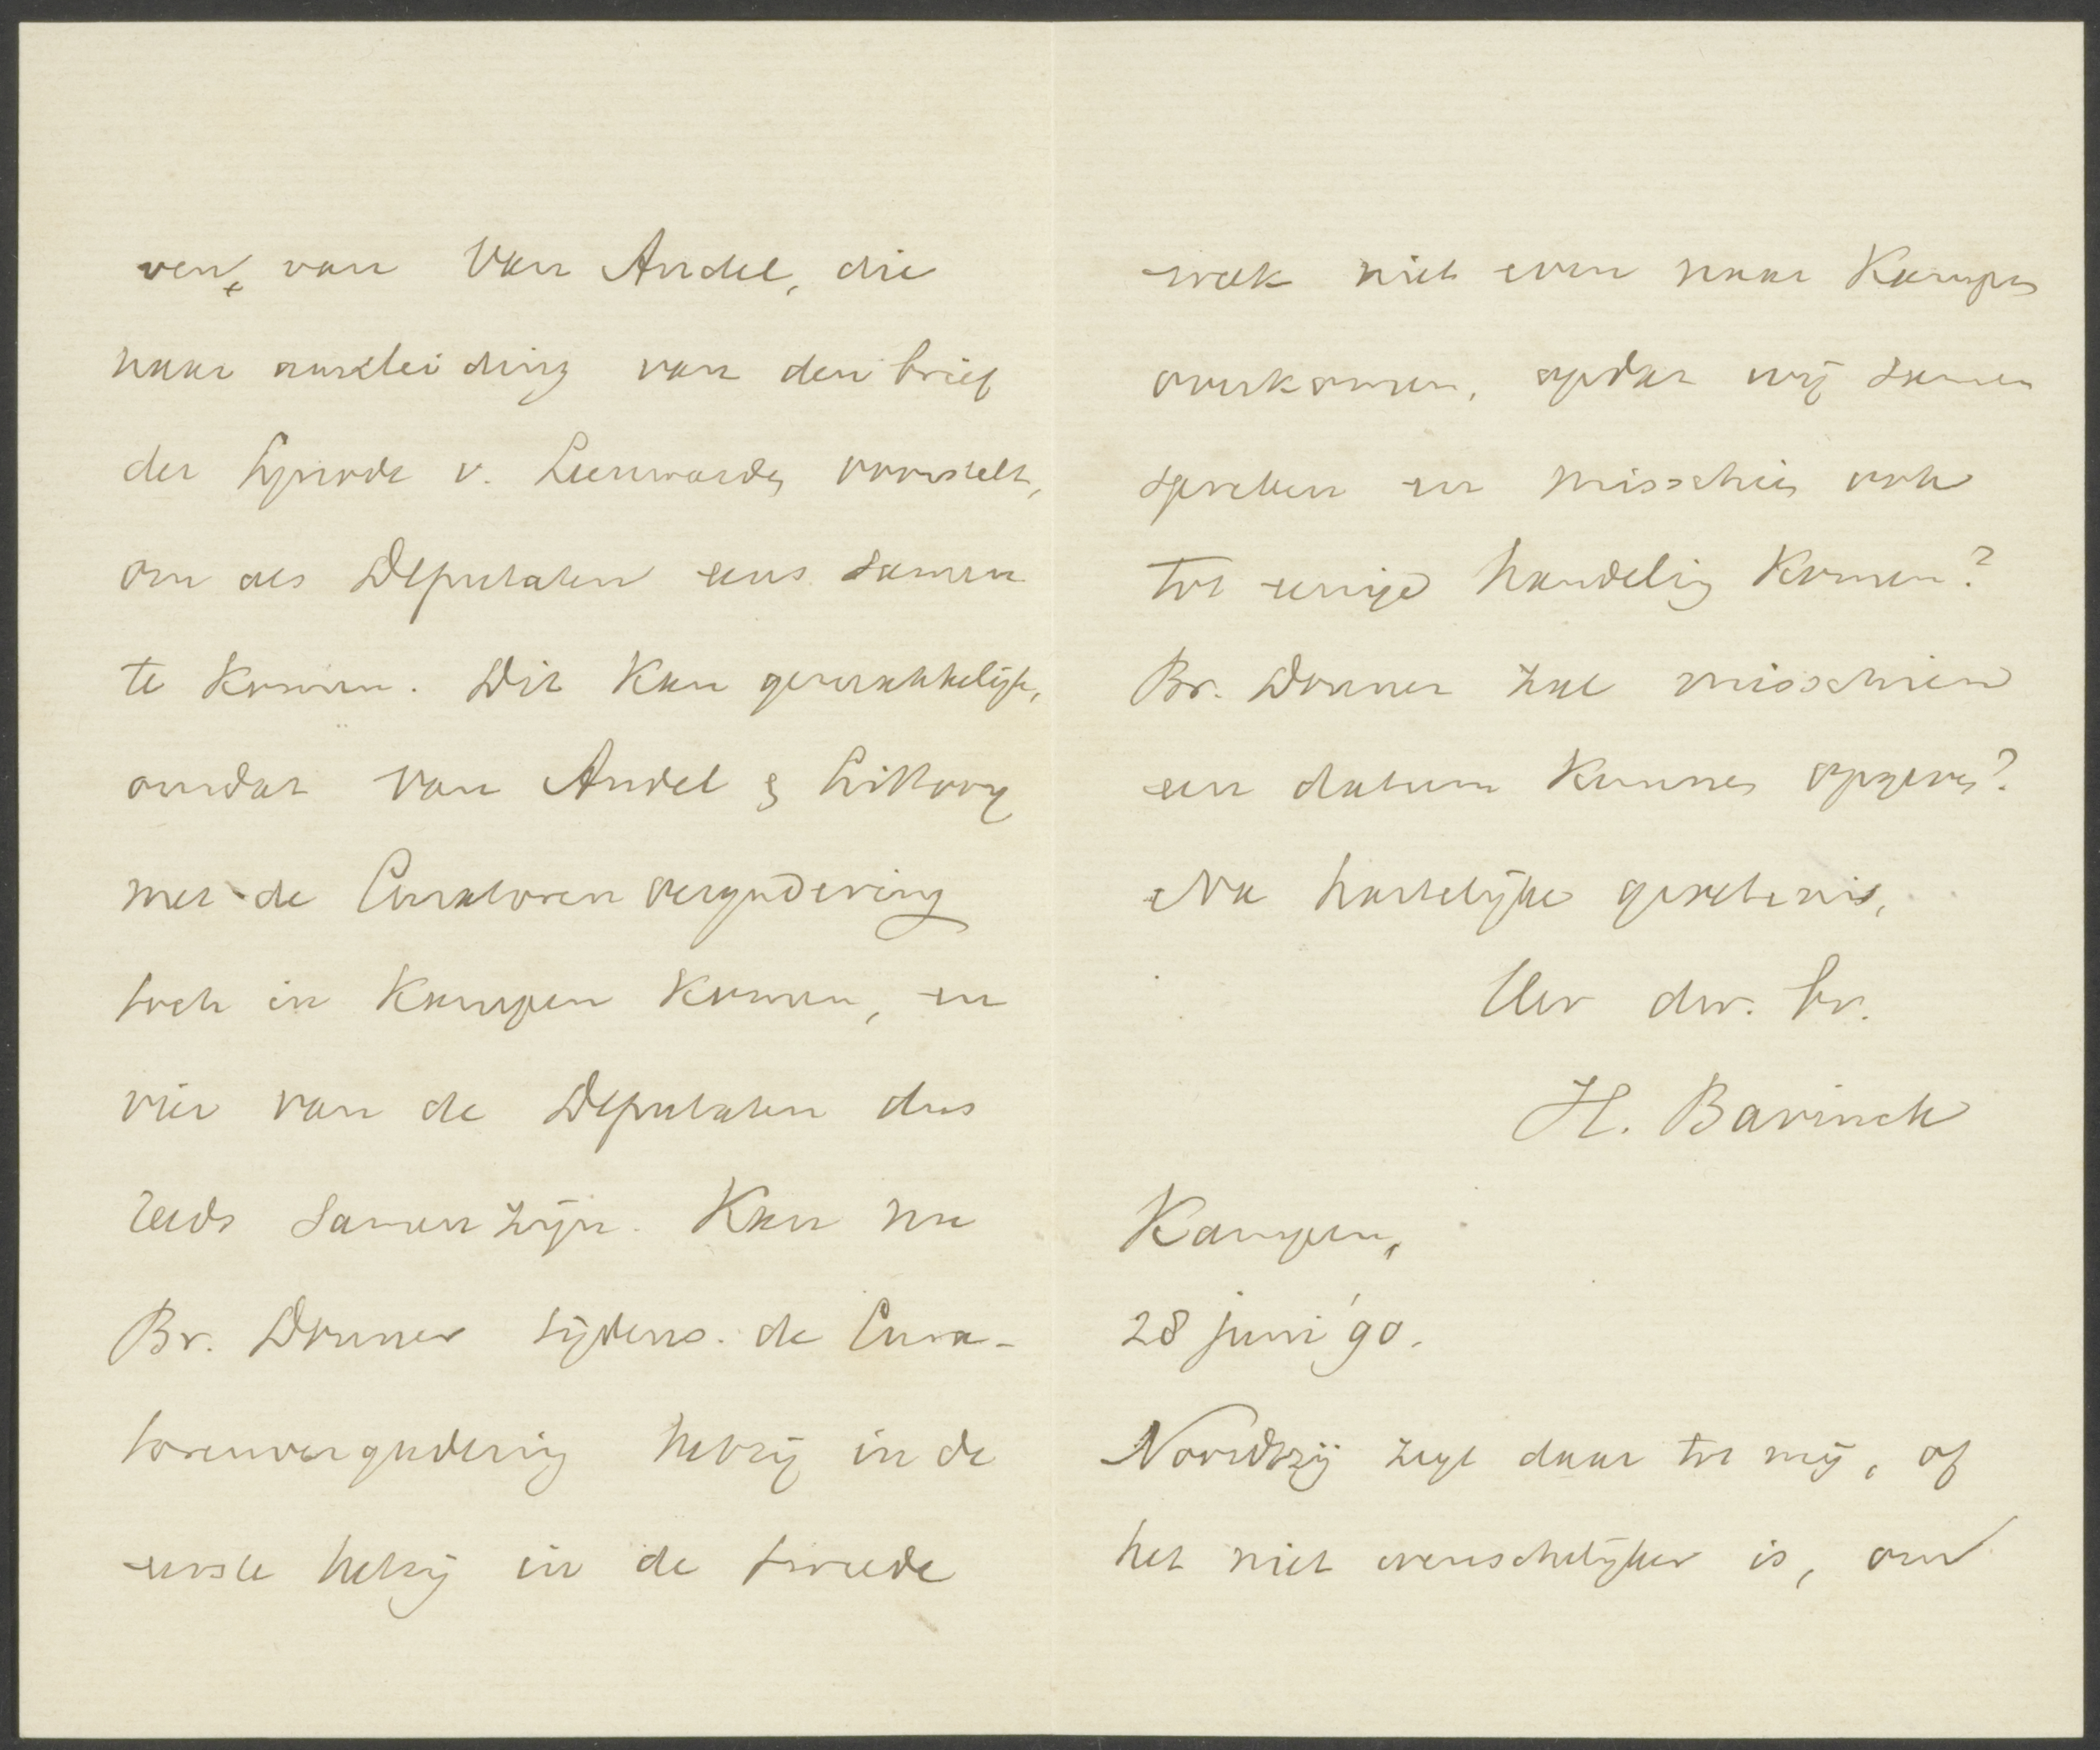 ven, van Van Andel, die
naar aanleiding van den brief
der Synode v. Leeuwarden voorstelt,
om als Deputaten eens samen
te komen. Dit kan gemakkelijk,
omdat Van Andel & Littooy
met de Curatorenvergadering
toch in Kampen komen, en
vier van de Deputaten dus
reeds samen zijn. Kan nu
Br. Donner tijdens de Cura-
torenvergadering hetzij in de
eerste hetzij in de tweede
week niet even naar Kampen
overkomen, opdat wij samen
spreken en misschien ook
tot eenige handeling komen?
Br. Donner zal misschien
een datum kunnen opgeven?
Na hartelijke groetenis,
Uw dw. br.
H. Bavinck
Kampen,
28 juni '90.
Noordtzij zegt daar tot mij, of
het niet wenschelijker is, om